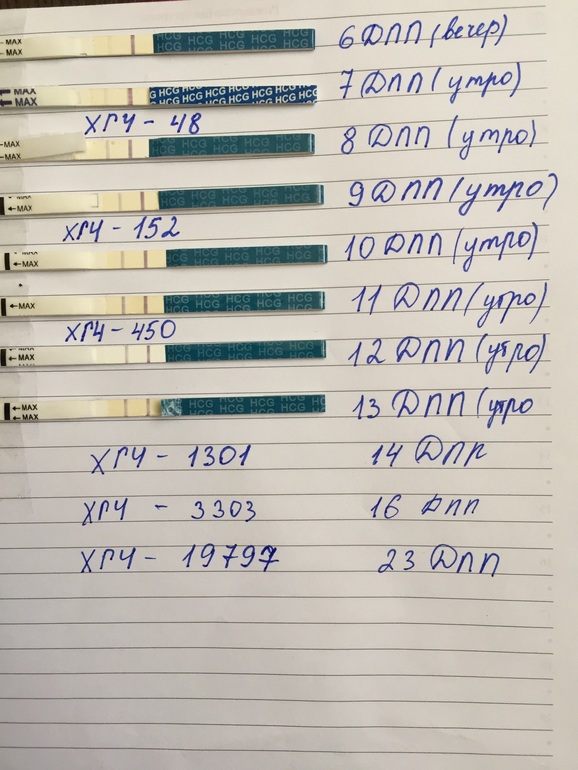 MAX
MAX
HCG HCG HCG HCG
6 ДПП (вечер)
MAX
← MAX
HCG HCG HCG HCG HCG
7 ДПП (утро)
ХГЧ - 48
MAX
MAX
HCG HCG HCG HCG
8 ДПП (утро)
← MAX
HCG HCG HCG HCG
9 ДПП (утро)
ХГЧ - 152
← MAX
HCG HCG HCG HCG
10 ДПП (утро)
← MAX
HCG HCG HCG HCG
11 ДПП (утро)
ХГЧ - 450
← MAX
HCG HCG HCG HCG
12 ДПП (утро)
← MAX
← MAX
HCG HCG HCG HCG
13 ДПП (утро
ХГЧ - 1301 14 ДПП
ХГЧ - 3303 16 ДПП
ХГЧ - 19797 23 ДПП